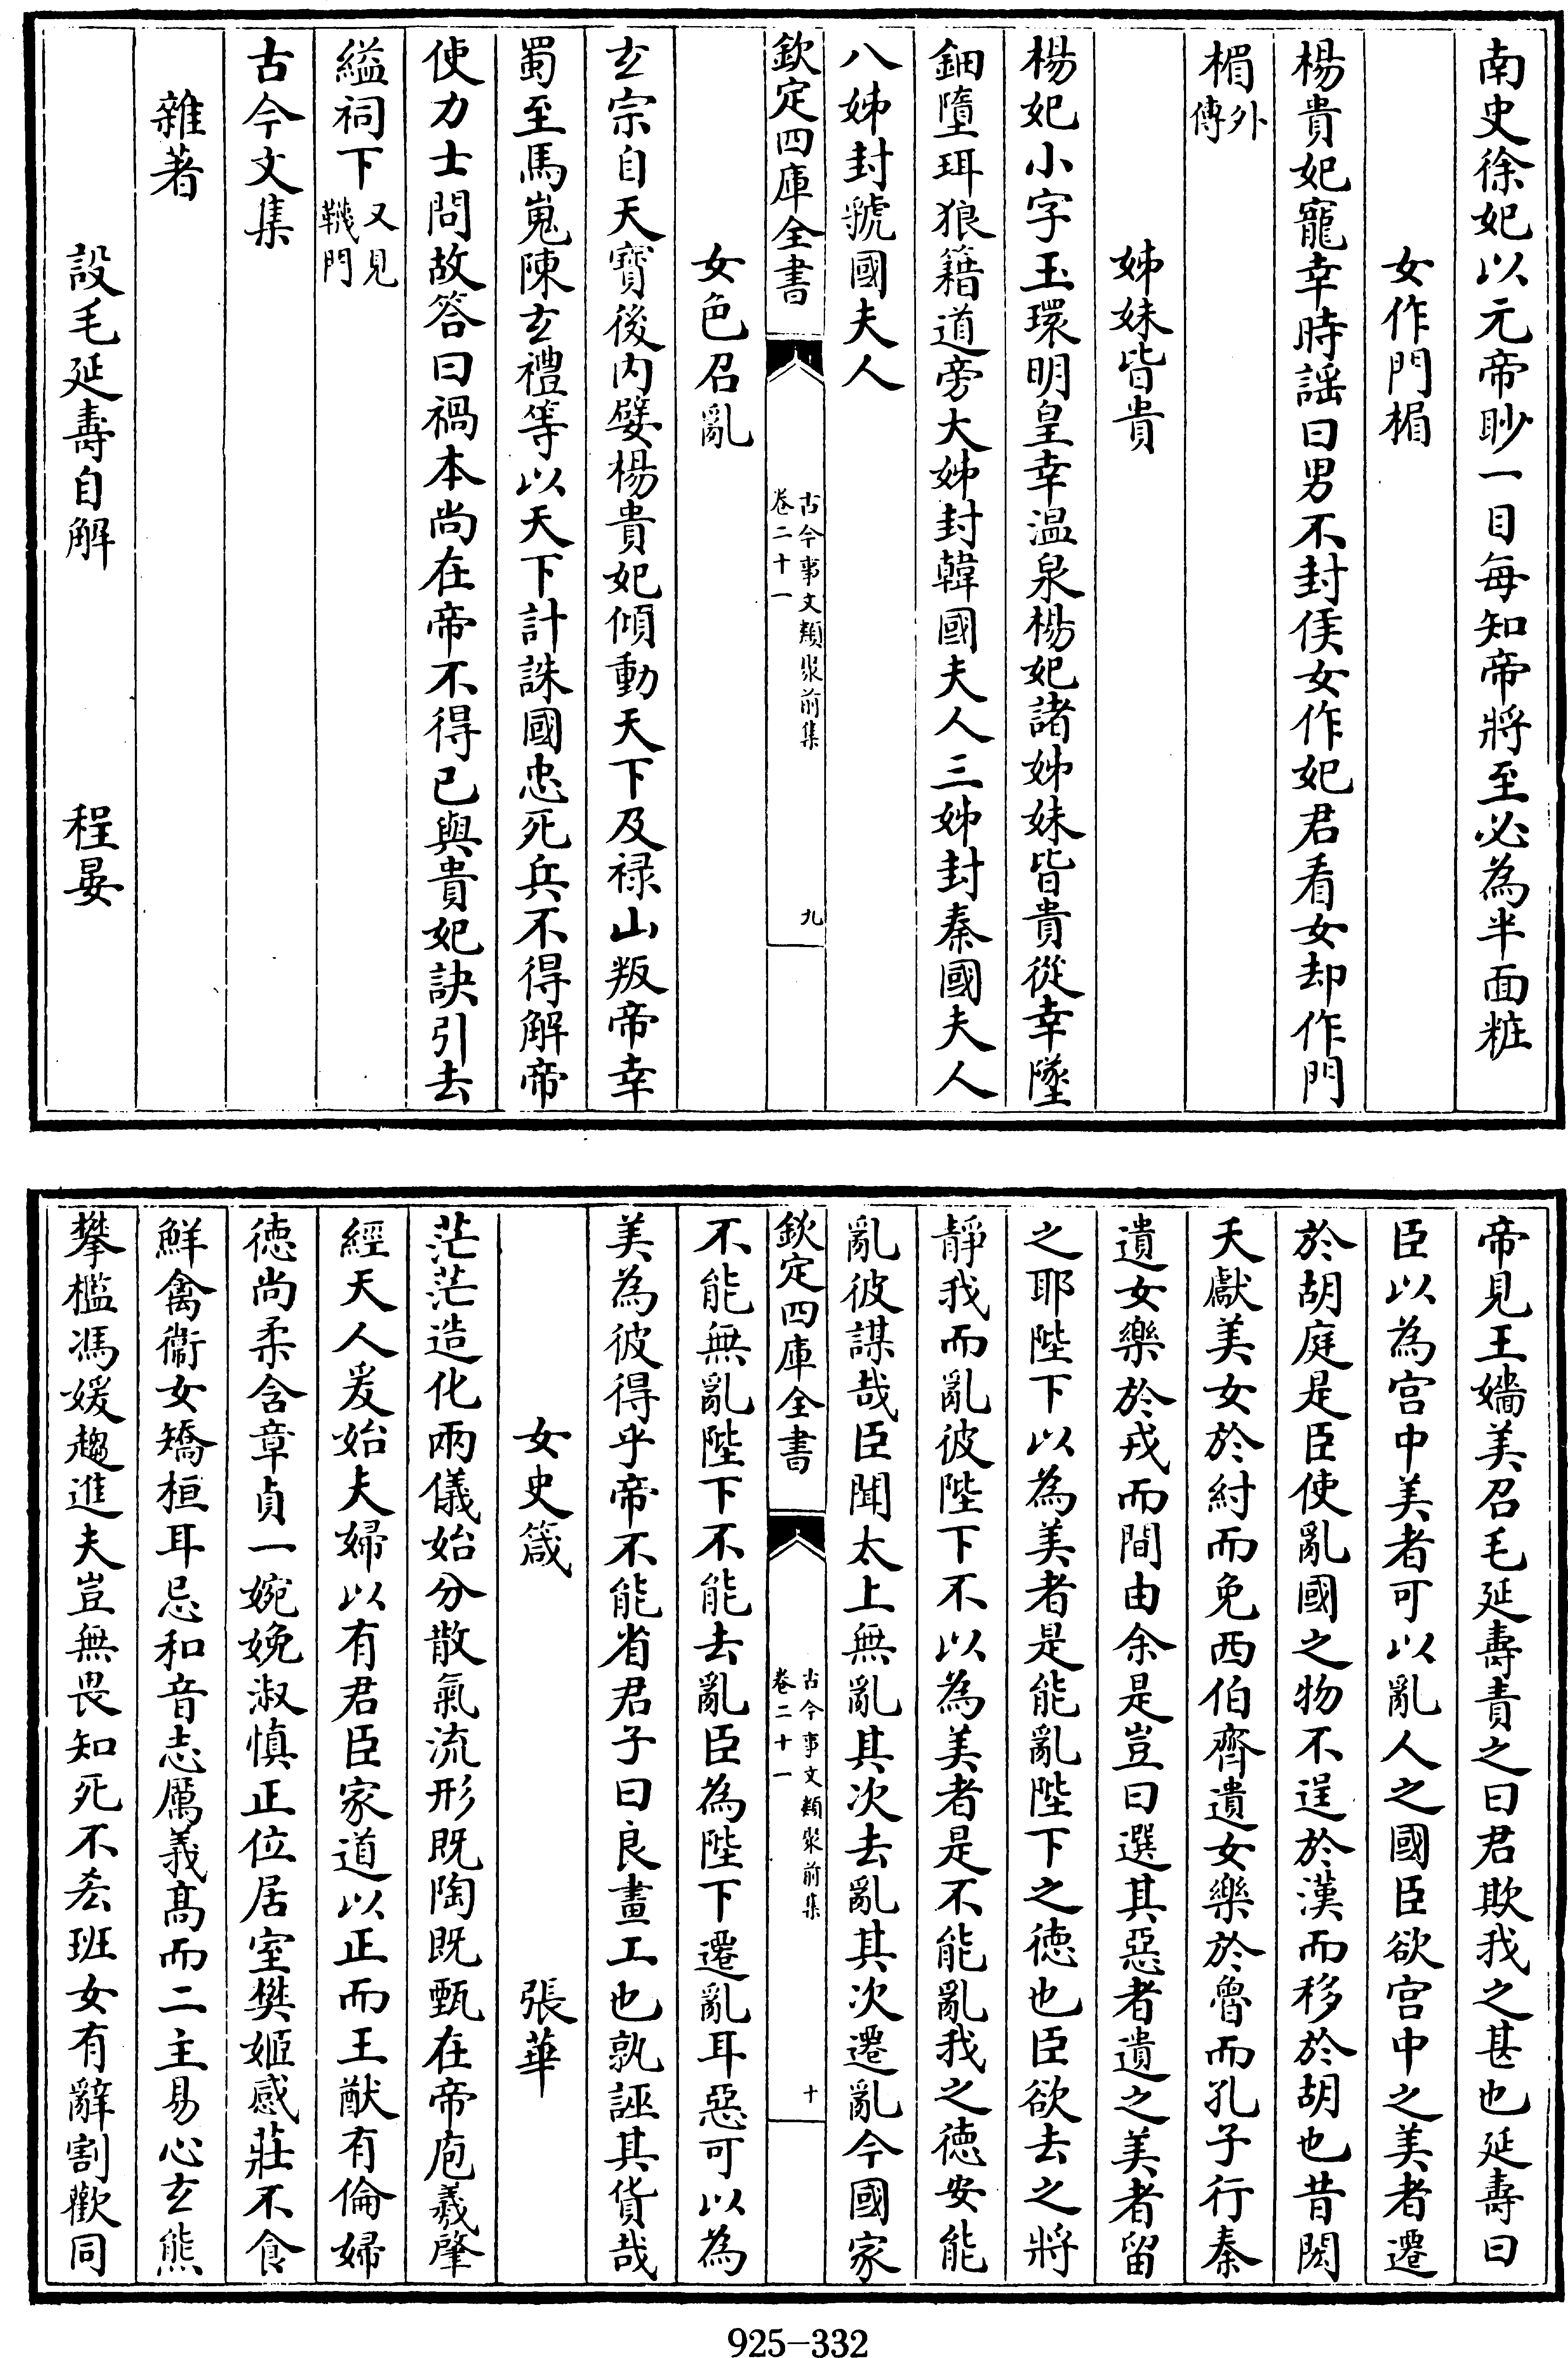 南史徐妃以元帝眇一目每知帝將至必為半面粧
女作門楣
楊貴妃寵幸時謡曰男不封侯女作妃君看女却作門
楣外傳
姊妹皆貴
楊妃小字玉環明皇幸温泉楊妃諸姊妹皆貴從幸墜
鈿墮珥狼籍道旁大姊封韓國夫人三姊封秦國夫人
八姊封虢國夫人
欽定四庫全書
古今事文類聚前集
卷二十一
九
女色召亂
玄宗自天寳後内嬖楊貴妃傾動天下及禄山叛帝幸
蜀至馬嵬陳玄禮等以天下計誅國忠死兵不得解帝
使力士問故答曰禍本尚在帝不得已與貴妃訣引去
縊祠下又見鞿門
古今文集
雜著
設毛延壽自解 程晏
帝見王嬙美召毛延壽責之曰君欺我之甚也延壽曰
臣以為宫中美者可以亂人之國臣欲宫中之美者遷
於胡庭是臣使亂國之物不逞於漢而移於胡也昔閎
夭獻美女於紂而免西伯齊遺女樂於魯而孔子行秦
遺女樂於戎而間由余是豈曰選其惡者遺之美者留
之耶陛下以為美者是能亂陛下之徳也臣欲去之將
靜我而亂彼陛下不以為美者是不能亂我之徳安能
亂彼謀哉臣聞太上無亂其次去亂其次遷亂今國家
欽定四庫全書
古今事文類聚前集
卷二十一
十
不能無亂陛下不能去亂臣為陛下遷亂耳惡可以為
美為彼得乎帝不能省君子曰良畫工也孰誣其貨哉
女史箴 張華
茫茫造化兩儀始分散氣流形既陶既甄在帝庖羲肇
經天人爰始夫婦以有君臣家道以正而王猷有倫婦
徳尚柔含章貞一婉娩淑慎正位居室樊姬感莊不食
鮮禽衞女矯桓耳忌和音志厲義髙而二主易心玄熊
攀檻馮媛趨進夫豈無畏知死不㤀班女有辭割歡同
925-332